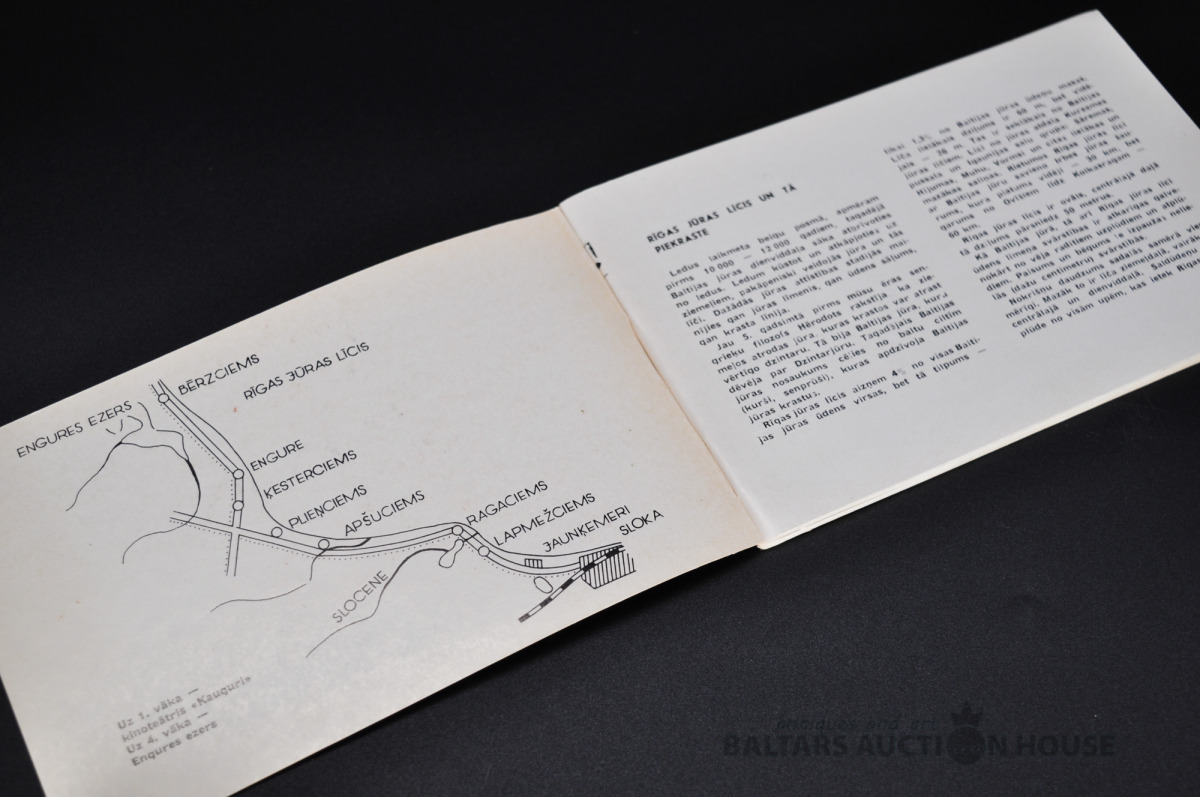 ENGURES EZERS
BĒRZCIEMS
RĪGAS JŪRAS LĪCIS
ENGURE
ĶESTERCIEMS
PLIEŅCIEMS
APŠUCIEMS
RAGACIEMS
LAPMEŽCIEMS
JAUNĶEMERI
SLOKA
SLOCENE
Uz 1. vāka —
kinoteātris «Kauguri»
Uz 4. vāka —
Engures ezers
RĪGAS JŪRAS LĪCIS UN TĀ
PIEKRASTE
Ledus laikmeta beigu posmā, apmēram
pirms 10 000 — 12 000 gadiem, tagadējā
Baltijas jūras dienviddaļa sāka atbrīvoties
no ledus. Ledum kūstot un atkāpjoties uz
ziemeļiem, pakāpeniski veidojās jūra un tās
līči. Dažādās jūras attīstības stadijās mai-
nījies gan jūras līmenis, gan ūdens sāļums,
gan krasta līnija.
Jau 5. gadsimtā pirms mūsu ēras sen-
grieķu filozofs Hērodots rakstīja ka zie-
meļos atrodas jūra, kuras krastos var atrast
vērtīgo dzintaru. Tā bija Baltijas jūra, kuru
dēvēja par Dzintarjūru. Tagadējais Baltijas
jūras nosaukums cēlies no baltu ciltīm
(kurši, senprūši), kuras apdzīvoja Baltijas
jūras krastus.
Rīgas jūras līcis aizņem 4% no visas Balti-
jas jūras ūdens virsas, bet tā tilpums —
tikai 1,5% no Baltijas jūras ūdeņu masas.
Līča lielākais dziļums ir 60 m, bet vidē-
jais — 26 m. Tas ir seklākais no Baltijas
jūras līčiem. Līci no jūras atdala Kurzemes
pussala un Igaunijas salu grupa: Sāremā,
Hijumā, Muhu, Vormsi un citas lielākas un
mazākas saliņas. Rietumos Rīgas jūras līci
ar Baltijas jūru savieno Irbes jūras šau-
rums, kura platums vidēji — 30 km, bet
garums no Ovišiem līdz Kolkasragam —
60 km.
Rīgas jūras līcis ir ovāls, centrālajā daļā
tā dziļums pārsniedz 50 metrus.
Kā Baltijas jūrā, tā arī Rīgas jūras līcī
ūdens līmeņa svārstības ir atkarīgas galve-
nokārt no vēja radītiem uzplūdiem un atplū-
diem. Paisums un bēgums, izpaužas nelie-
lās (dažu centimetru) svārstībās.
Nokrišņu daudzums sadalās samērā vien-
mērīgi. Mazāk to ir līča ziemeļdaļā, vairāk
centrālajā un dienviddaļā. Saldūdeņu
plūde no visām upēm, kas ietek Rīgas
BALTARS AUCTION HOUSE